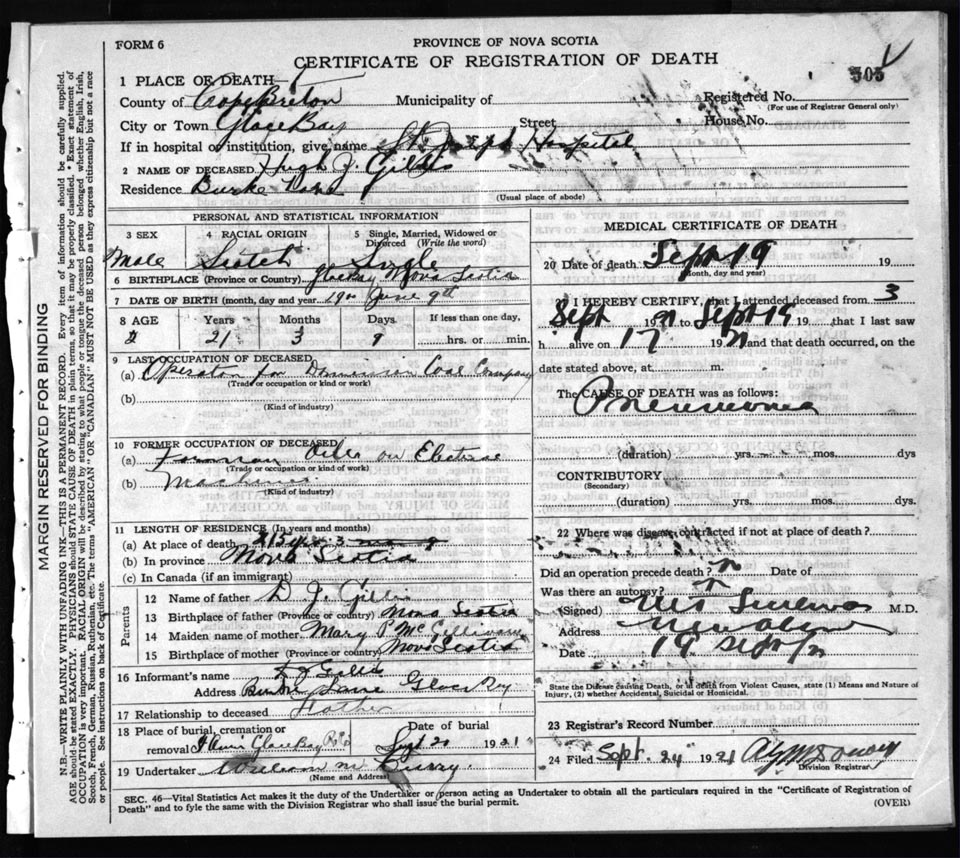 FORM 6
PROVINCE OF NOVA SCOTIA
CERTIFICATE OF REGISTRATION OF DEATH
505
1 PLACE OF DEATH
County of Cape Breton Municipality of Registered No.
(For use of Registrar General only)
City or Town Glace Bay Street House No.
If in hospital or institution, give name St. Joseph Hospital
2 NAME OF DECEASED Hugh J. Gillis
Residence Burke
(Usual place of abode)
PERSONAL AND STATISTICAL INFORMATION
3 SEX 4 RACIAL ORIGIN 5 Single, Married, Widowed or Divorced (Write the word)
Male Scotch Single
6 BIRTHPLACE (Province or Country) Glace Bay Nova Scotia
7 DATE OF BIRTH (month, day and year) June 9th
8 AGE Years Months Days If less than one day,
21 3 9 hrs. or min.
9 LAST OCCUPATION OF DECEASED
(a) Operator for Dominion Coal Company
(Trade or occupation or kind of work)
(b)
(Kind of industry)
10 FORMER OCCUPATION OF DECEASED
(a) Oiler on Electric
(Trade or occupation or kind of work)
(b) Machines
(Kind of industry)
11 LENGTH OF RESIDENCE (In years and months)
(a) At place of death
(b) In province Nova Scotia
(c) In Canada (if an immigrant)
Parents
12 Name of father D. J. Gillis
13 Birthplace of father (Province or country) Nova Scotia
14 Maiden name of mother Mary McGillivary
15 Birthplace of mother (Province or country) Nova Scotia
16 Informant's name D J Gillis
Address Lane Glace Bay
17 Relationship to deceased Father
18 Place of burial, cremation or removal Glace Bay Date of burial Sept 20 1921
19 Undertaker William McCurry
(Name and Address)
MEDICAL CERTIFICATE OF DEATH
20 Date of death Sept 19 19
(Month, day and year)
I HEREBY CERTIFY, that I attended deceased from 3
Sept 1921 to Sept 19 19 that I last saw
h alive on 17 192 and that death occurred, on the
date stated above, at m.
The CAUSE OF DEATH was as follows:
Pneumonia
(duration) yrs. mos. dys
CONTRIBUTORY
(Secondary)
(duration) yrs. mos. dys.
22 Where was disease contracted if not at place of death?
Did an operation precede death? no Date of
Was there an autopsy? no
(Signed) M.D.
Address New Aberdeen
Date 19 Sept
State the Disease causing Death, or in death from Violent Causes, state (1) Means and Nature of
Injury, (2) whether Accidental, Suicidal or Homicidal.
23 Registrar's Record Number
24 Filed Sept. 24 1921
Division Registrar
SEC. 46—Vital Statistics Act makes it the duty of the Undertaker or person acting as Undertaker to obtain all the particulars required in the "Certificate of Registration of
Death" and to fyle the same with the Division Registrar who shall issue the burial permit. (OVER)
MARGIN RESERVED FOR BINDING
N.B.—WRITE PLAINLY WITH UNFADING INK—THIS IS A PERMANENT RECORD. Every item of information should be carefully supplied.
AGE should be stated EXACTLY. PHYSICIANS should STATE CAUSE OF DEATH in plain terms, so that it may be properly classified. * Exact statement of
OCCUPATION is very important. RACIAL ORIGIN will be described by stating to what people or tongue the deceased person belonged whether English, Irish,
Scotch, French, German, Russian, Ruthenian, etc. The terms "AMERICAN" or "CANADIAN" MUST NOT BE USED as they express citizenship but not a race
or people. See instructions on back of Certificate.